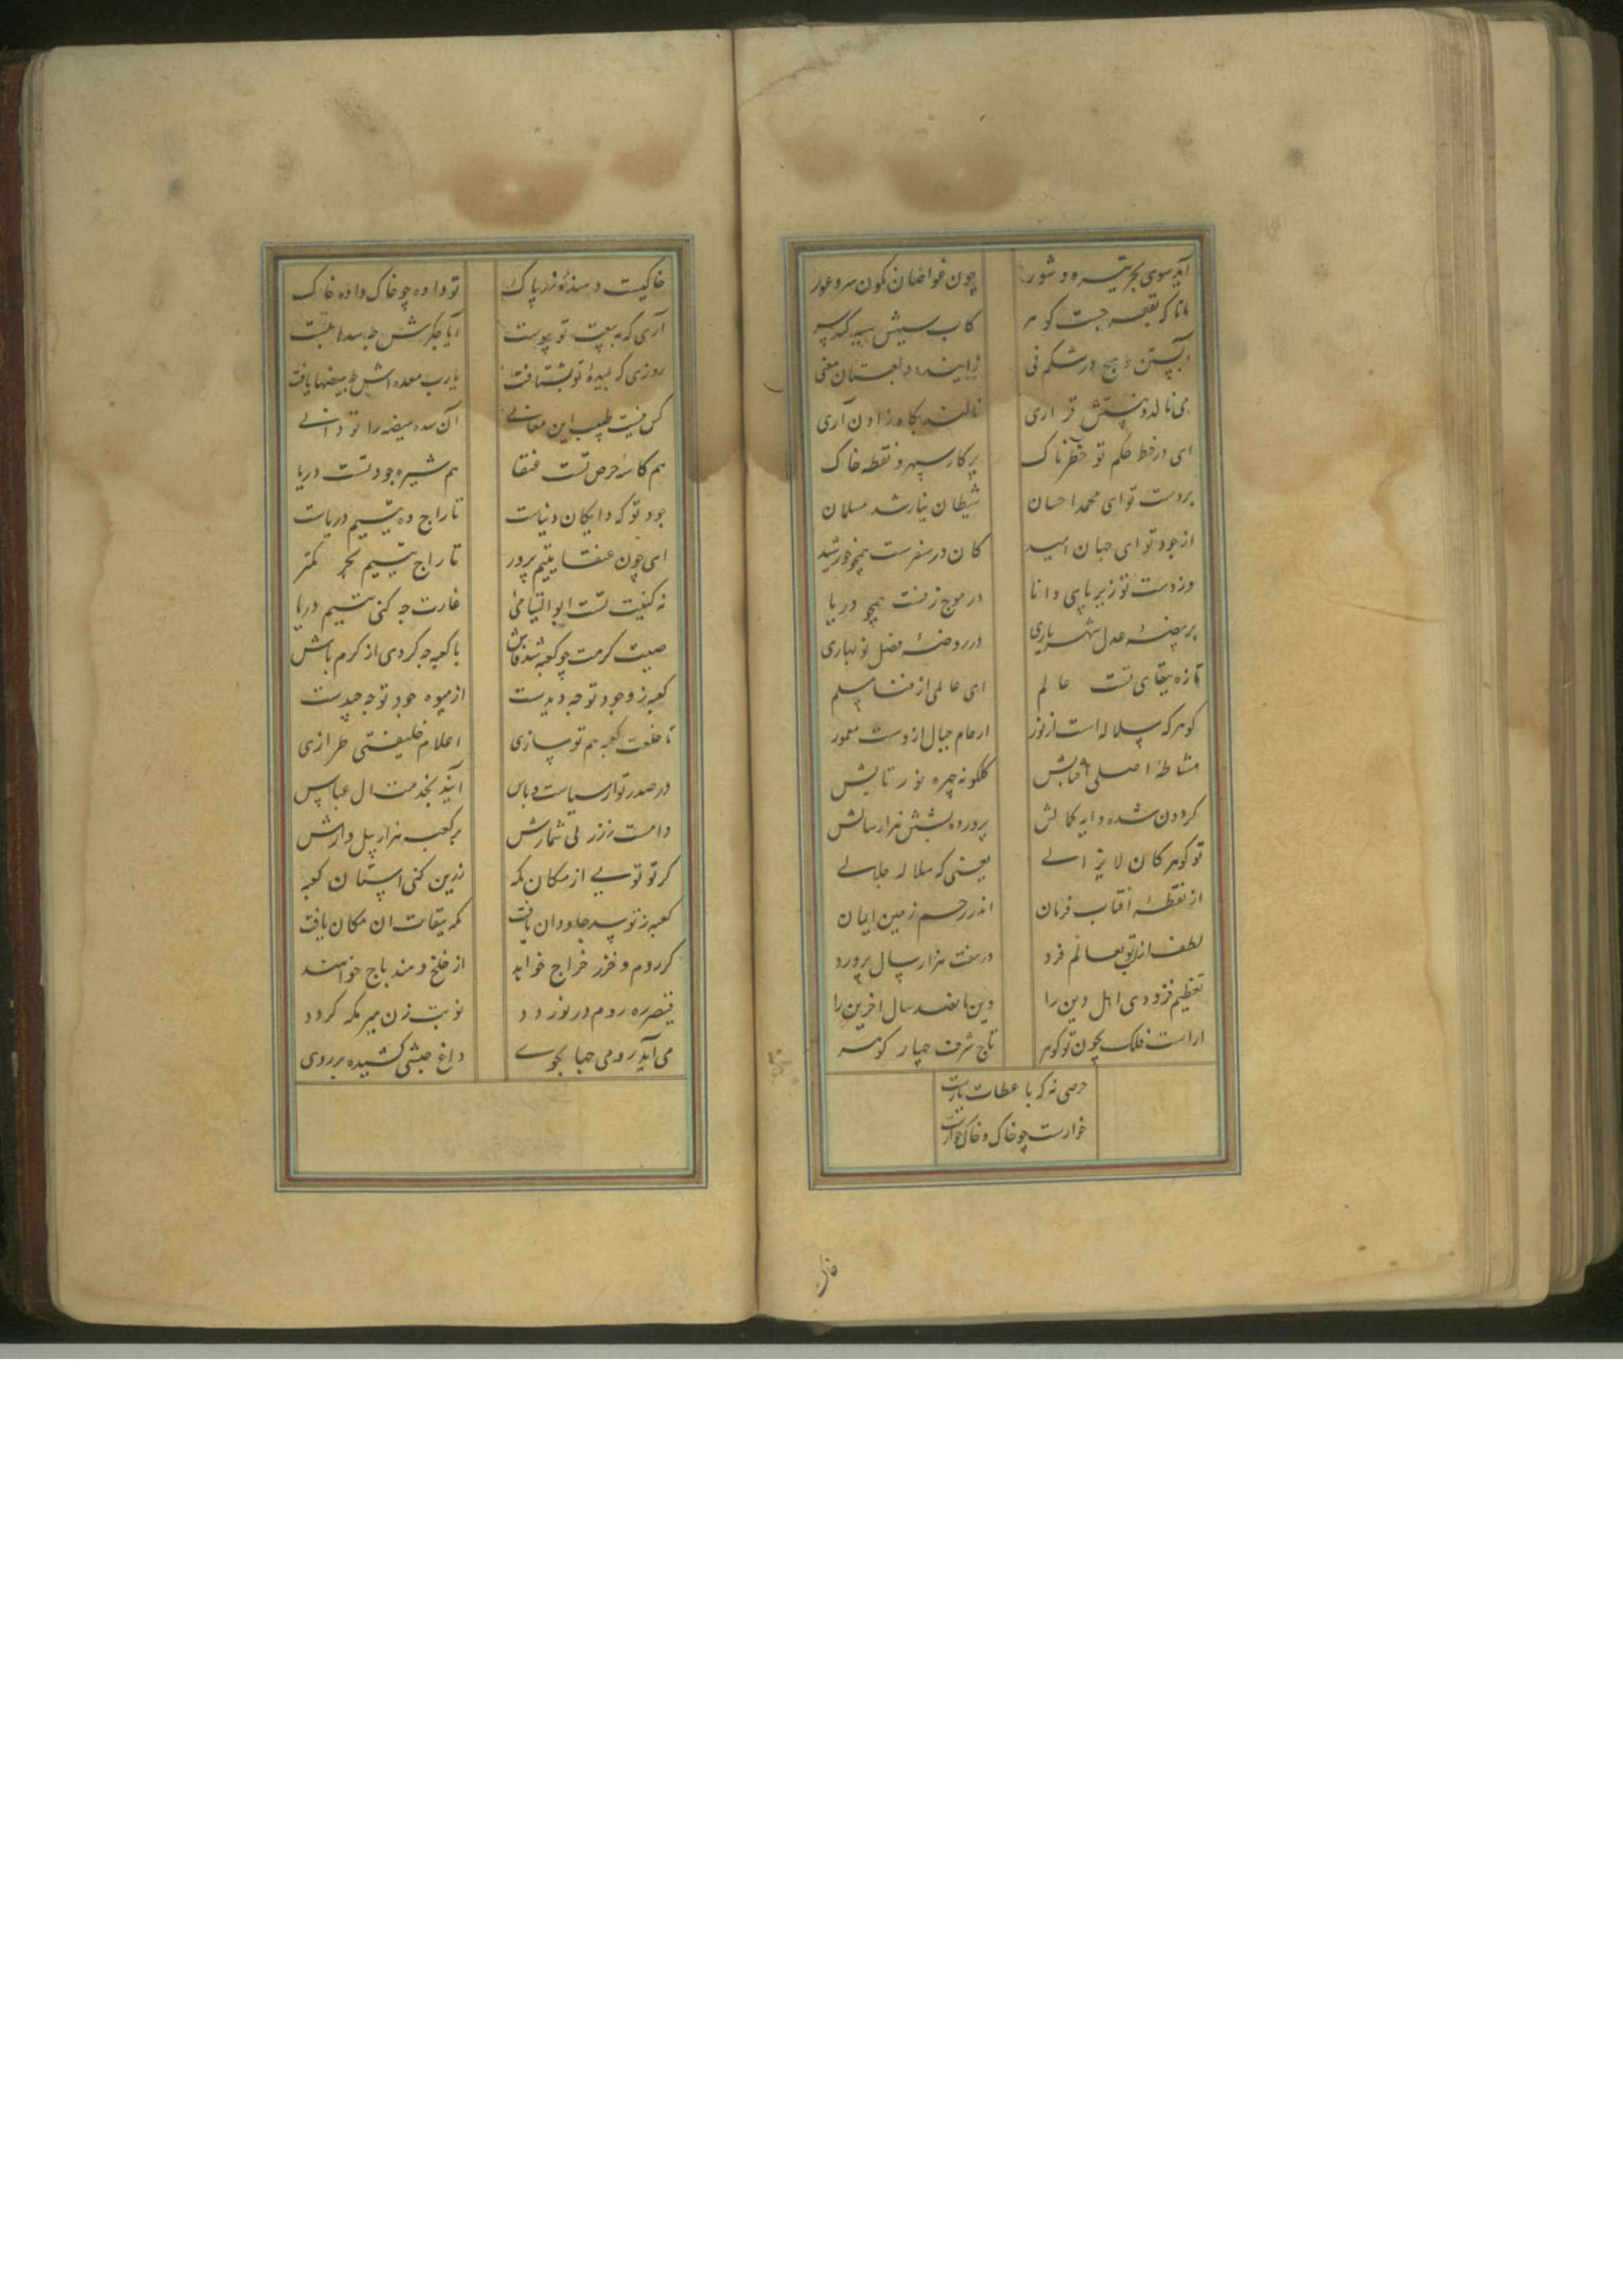 آید سوی بحر تیره و شور چون غواصان نکون سر و عور
مانا که بقعر جست کوهر کاب سیهش سپید کند سر
آبستن و هیچ در شکم نی زاینده و لعبتان معنی
می نالد و نیستش قراری نالند بکاه زادن آری
ای در خط حکم تو خطرناک پرکار سپهر و نقطه خاک
بر دست تو ای محمد احسان شیطان نیاز شد مسلمان
از جود تو ای جهان امید کان در سفرست همچو خورشید
وز دست تو زیر پای دانا در موج زنست همچو دریا
بر بیضه عدل شهریاری در روضه فضل نو بهاری
تازه ببقای تست عالم ای عالمی از فنا مسلم
کوهر که سلاله است از نور ارحام جبال ازوست معمور
مشاطه اصلی آفتابش کلکونه چهره نور تابش
کردون شده دایه کمالش پرورده بشش هزار سالش
تو کوهر کان لایزالی یعنی که سلاله جلالی
از نقطه آفتاب فرمان اندر رحم زمین ایمان
لطف ازلی بعالم فرد در هفت هزار سال پرورد
تعظیم فزودی اهل دین را وین پانصد سال آخرین را
اراست فلک بچون تو کوهر تاج شرف چهار کوهر
حرصی نه که با عطات یارست
خوارست چو خاک و خاک خوارست
خاکیت دهنده زر پاک تو داده چو خاک داده خاک
آری که به بیعت تو پیوست آیا جکرش چه سده بست
روزی که بمیده تو بشتافت یا رب معده اش چه بیضها یافت
کس نیست طبیب این معانی آن سده بیضه را تو دانی
هم کاسه حرص تست عنقا هم شیره جود تست دریا
جود تو که دایکان دنیات تاراج ده یتیم دریات
ای چون عنقا یتیم پرور تاراج یتیم بحر کمتر
نه کنیت تست ابو الیتامی غارت چه کنی یتیم دریا
صیت کرمت چو کعبه شد فاش با کعبه چه کردی از کرم باش
کعبه ز وجود تو چه دیدست از میوه جود تو چه چیدست
تا خلعت کعبه هم تو سازی اعلام خلیفتی طرازی
در صدر تو از سیاست و باس آیند بخدمت ال عباس
دامت ز زر بی شمارش بر کعبه هزار پیل وارش
کر تو تویی از مکان مکه زرین کنی استان کعبه
کعبه ز تو سر جاودان یافت که میقات ان مکان یافت
کر روم و خزر خراج خواهد از خلخ و هند باج خواهند
قیصر ره روم در نوردد نوبت زن میر مکه کردد
می آید رومی جهابجوی داغ حبشی کشیده بر روی
خاک